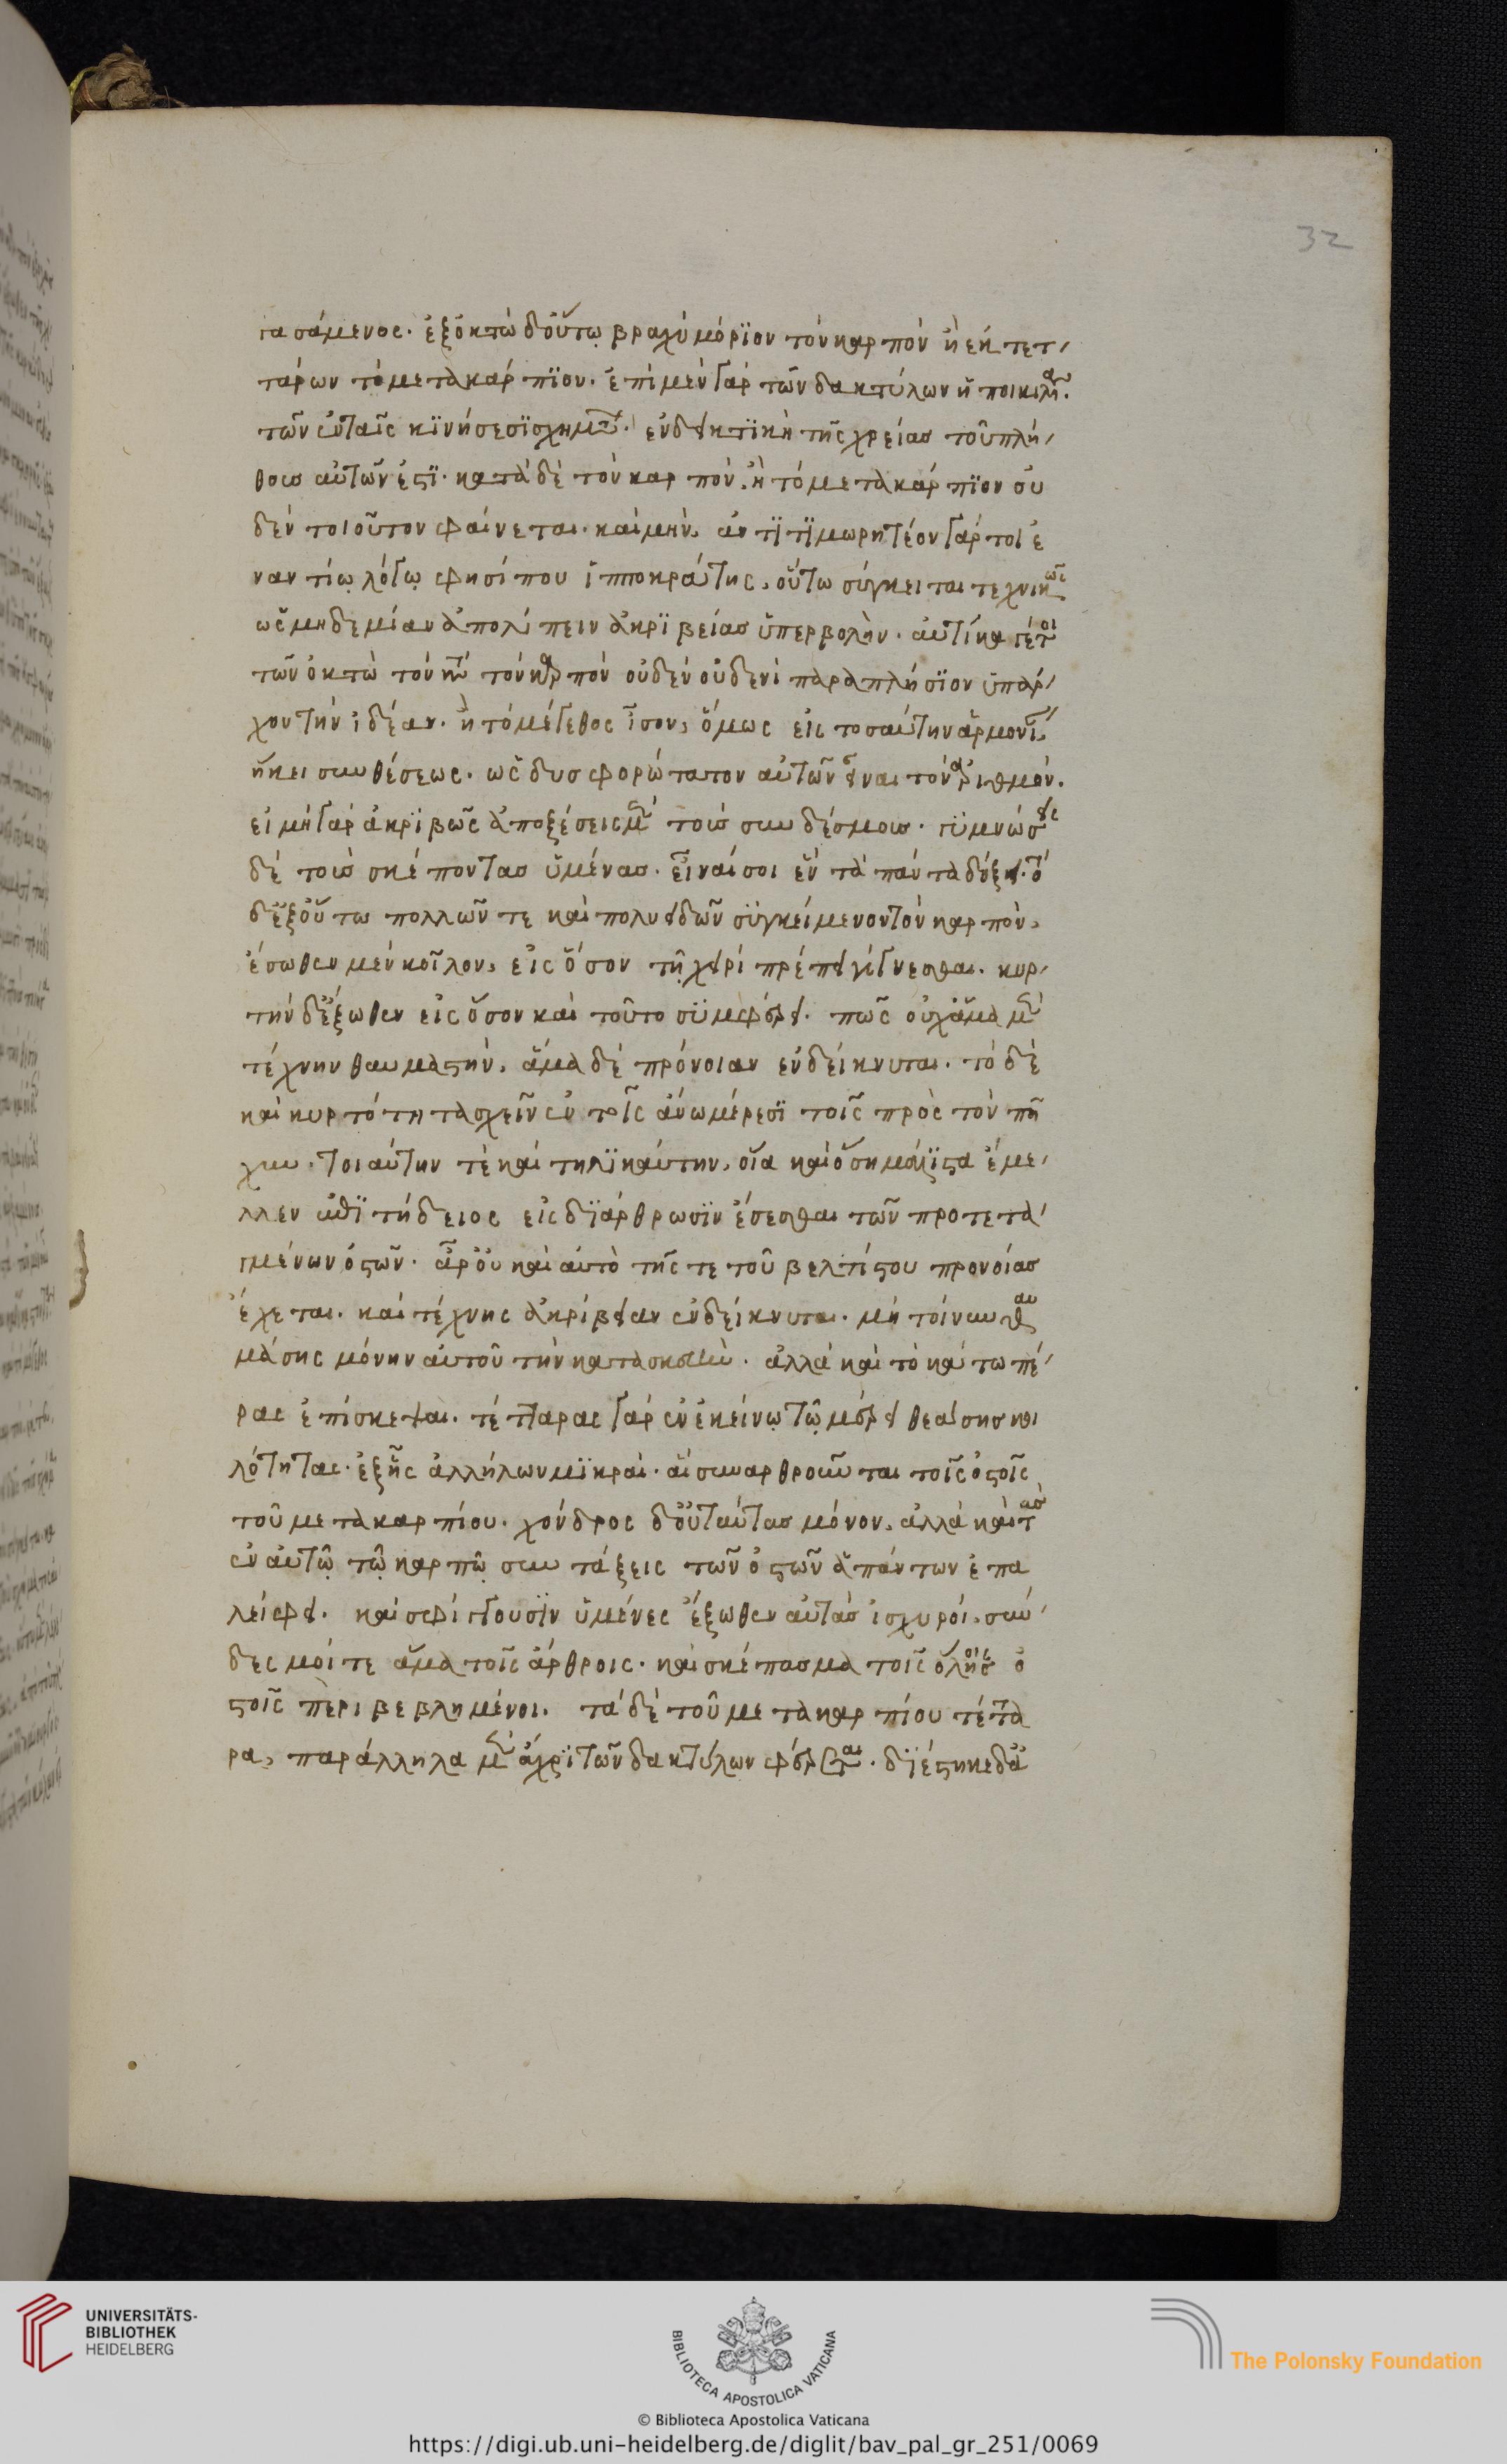 32
τασάμενος. ἐξ ὀκτὼ δ' οὕτω βραχὺ μόριον τὸν καρπὸν ἢ ἐκ τετ
τάρων τὸ μετακάρπϊον. ἐπὶ μὲν γὰρ τῶν δακτύλων ἡ ποικιλία
τῶν ἐν ταῖς κϊνήσεσϊ σχημάτων. ἐνδεικτϊκὴ τῆς χρείας τοῦ πλή
θους αὐτῶν ἐστϊ. κατὰ δὲ τὸν καρπὸν ἢ τὸ μετακάρπϊον οὐ
δὲν τοιοῦτον φαίνεται. καὶ μὴν, ἀντϊτϊμωρητέον γάρ τοι ἐ
ναντίω λόγω φησί που ἱπποκράτης, οὕτω σύγκειται τεχνικῶς
ὡς μηδεμίαν ἀπολιπεῖν ἀκρϊβείας ὑπερβολὴν. αὐτίκα γέ τοι
τῶν ὀκτὼ τῶν κατὰ τὸν καρπὸν οὐδὲν οὐδενὶ παραπλήσϊον ὑπάρ
χον τὴν ἰδέαν. ἢ τὸ μέγεθος ἴσον, ὅμως εἰς τοσαύτην ἁρμονίαν
ἥκει συνθέσεως. ὡς δυσφορώτατον αὐτῶν εἶναι τὸν ἀριθμὸν.
εἰ μὴ γὰρ ἀκρϊβῶς ἀποξέσεις μὲν τοὺς συνδέσμους. γϋμνώσεις
δὲ τοὺς σκέποντας ὑμένας. εἶναί σοι ἓν τὰ πάντα δόξει. τὸ
δ' ἐξ οὕτω πολλῶν τε καὶ πολυειδῶν σϋγκείμενον τὸν καρπὸν,
ἔσωθεν μὲν κοῖλον, εἰς ὅσον τῇ χειρὶ πρέπει γίγνεσθαι. κυρ
τὴν δ' ἔξωθεν εἰς ὅσον καὶ τοῦτο σϋμφέρει. πῶς οὐχ ἅμα μὲν
τέχνην θαυμαστὴν, ἅμα δὲ πρόνοιαν ἐνδείκνυται. τὸ δὲ
καὶ κυρτότητα σχεῖν ἐν τοῖς ἄνω μέρεσϊ τοῖς πρὸς τὸν πῆ
χυν. τοιαύτην τὲ καὶ τηλϊκαύτην, οἵα καὶ ὅση μάλϊστα ἔμε
λλεν ἐπϊτήδειος εἰς δϊάρθρωσϊν ἔσεσθαι τῶν προτετα
γμένων ὀστῶν. ἆρ' οὐ καὶ αὐτὸ τῆς τε τοῦ βελτίστου προνοίας
ἔχεται. καὶ τέχνης ἀκρίβειαν ἐνδείκνυται. μὴ τοίνυν θαυ
μάσης μόνην αὐτοῦ τὴν κατασκευὴν. ἀλλὰ καὶ τὸ κάτω πέ
ρας ἐπίσκεψαι. τέτταρας γὰρ ἐν ἐκείνω τῶ μέρει θεάσῃ κοι
λότητας. ἑξῆς ἀλλήλων μϊκραὶ. αἳ συναρθροῦνται τοῖς ὀστοῖς
τοῦ μετακαρπίου. χόνδρος δ' οὐ ταύτας μόνον, ἀλλὰ καὶ τὰς
ἐν αὐτῶ τῶ καρπῶ συντάξεις τῶν ὀστῶν ἁπάντων ἐπα
λείφει. καὶ σφίγγουσϊν ὑμένες ἔξωθεν αὐτὰς ἰσχυροὶ, σύν
δεσμοί τε ἅμα τοῖς ἄρθροις. καὶ σκέπασμα τοῖς ὅλοις ὀ
στοῖς περιβεβλημένοι. τὰ δὲ τοῦ μετακαρπίου τέττα
ρα, παράλληλα μὲν ἄχρϊ τῶν δακτύλων φέρεται. δϊέστηκε δ' ἀ
UNIVERSITÄTS-
BIBLIOTHEK
HEIDELBERG
BIBLIOTECA APOSTOLICA VATICANA
The Polonsky Foundation
© Biblioteca Apostolica Vaticana
https://digi.ub.uni-heidelberg.de/diglit/bav_pal_gr_251/0069